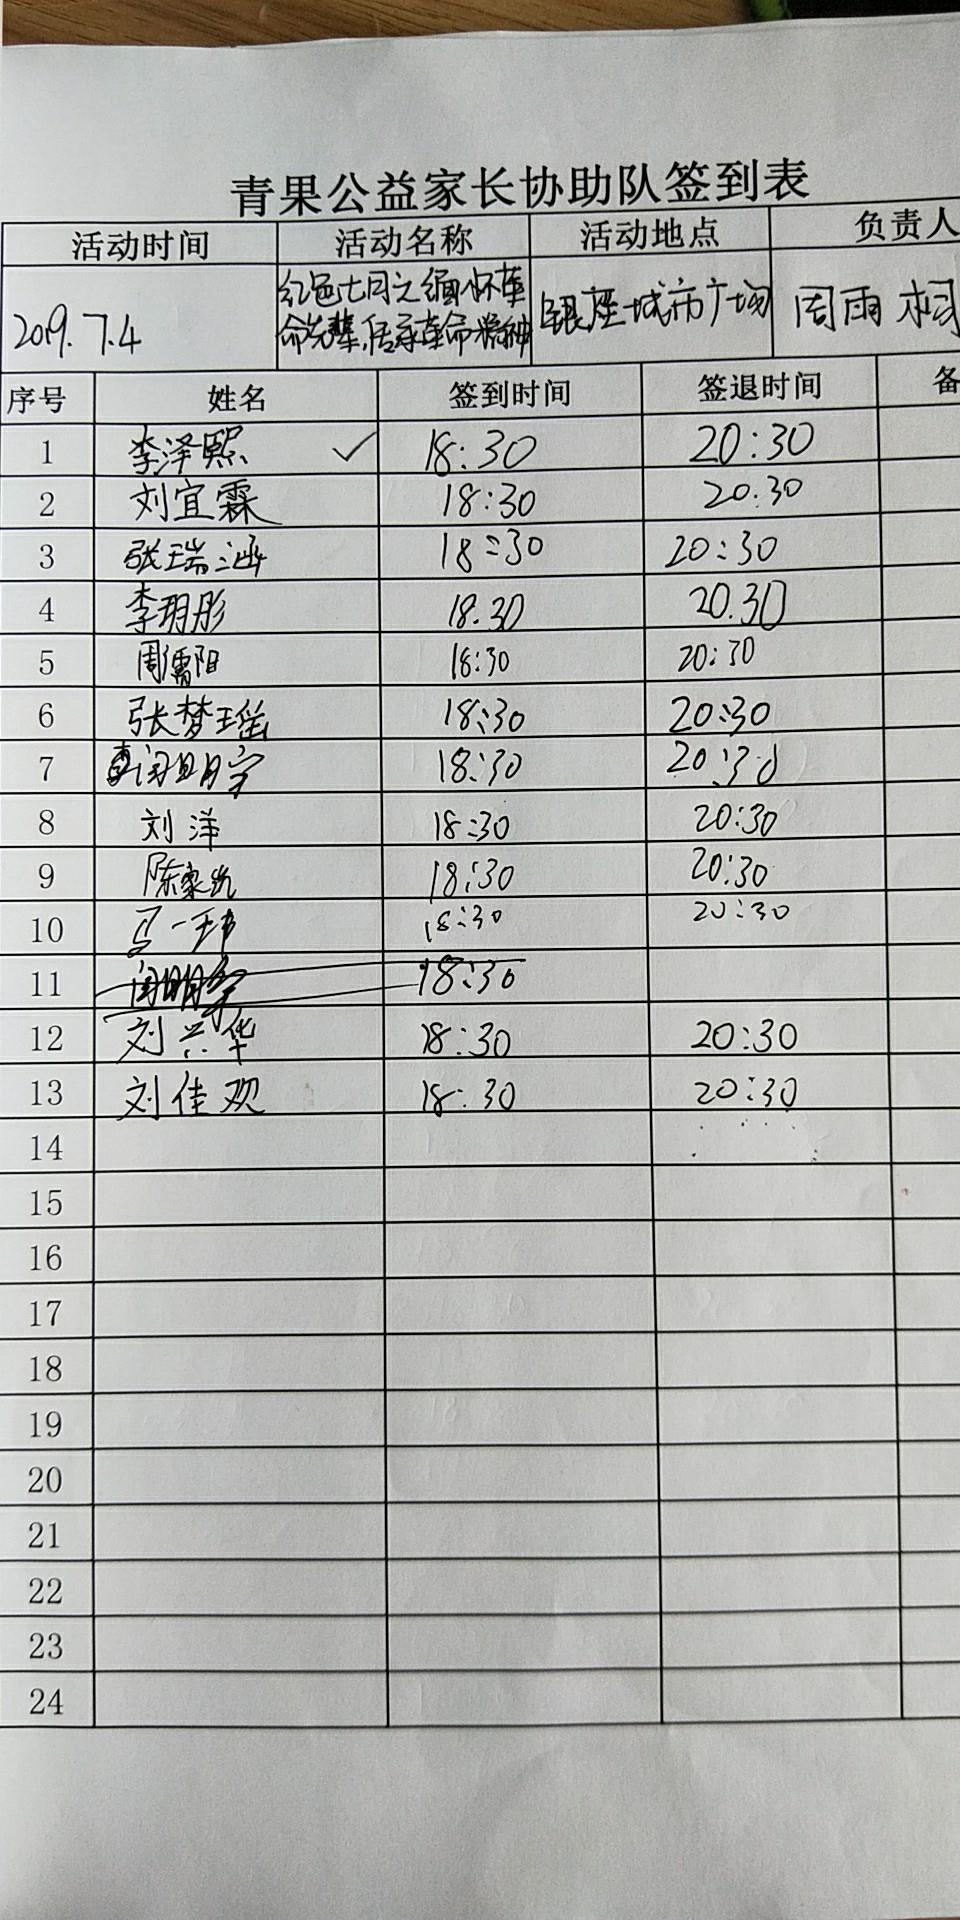 青果公益家长协助队签到表
活动时间 活动名称 活动地点 负责人
2019.7.4 红色七月之缅怀革命先辈,传承革命精神 银座城市广场 周雨桐
序号 姓名 签到时间 签退时间 备
1 李泽熙 ✓ 18:30 20:30
2 刘宜霖 18:30 20:30
3 张瑞涵 18:30 20:30
4 李玥彤 18.30 20.30
5 周儒阳 18:30 20:30
6 张梦瑶 18:30 20:30
7 闫明宇 18:30 20:30
8 刘洋 18:30 20:30
9 陈家 18:30 20:30
10 马一玮 18:30 20:30
11 18:30
12 刘兴华 18:30 20:30
13 刘佳观 18:30 20:30
14
15
16
17
18
19
20
21
22
23
24